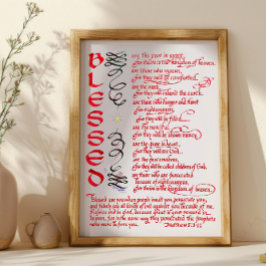 BLESSED
are the poor in spirit,
for theirs is the kingdom of heaven.
are those who mourn,
for they will be comforted.
are the meek,
for they will inherit the earth.
are those who hunger and thirst
for righteousness,
for they will be filled.
are the merciful,
for they will be shown mercy.
are the pure in heart,
for they will see God.
are the peacemakers,
for they will be called children of God.
are those who are persecuted
because of righteousness,
for theirs is the kingdom of heaven.
Blessed are you when people insult you, persecute you,
and falsely say all kinds of evil against you because of me.
Rejoice and be glad, because great is your reward in
heaven, for in the same way they persecuted the prophets
who were before you.